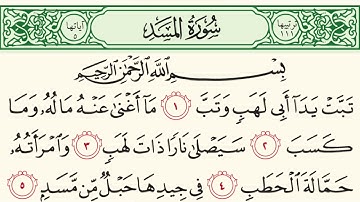 ترتيبها ١١١ سُورَةُ المَسَدِ آياتها ٥
بِسْمِ اللَّهِ الرَّحْمَٰنِ الرَّحِيمِ
تَبَّتْ يَدَآ أَبِى لَهَبٍ وَتَبَّ ١ مَآ أَغْنَىٰ عَنْهُ مَالُهُۥ وَمَا
كَسَبَ ٢ سَيَصْلَىٰ نَارًا ذَاتَ لَهَبٍ ٣ وَٱمْرَأَتُهُۥ
حَمَّالَةَ ٱلْحَطَبِ ٤ فِى جِيدِهَا حَبْلٌ مِّن مَّسَدٍۭ ٥